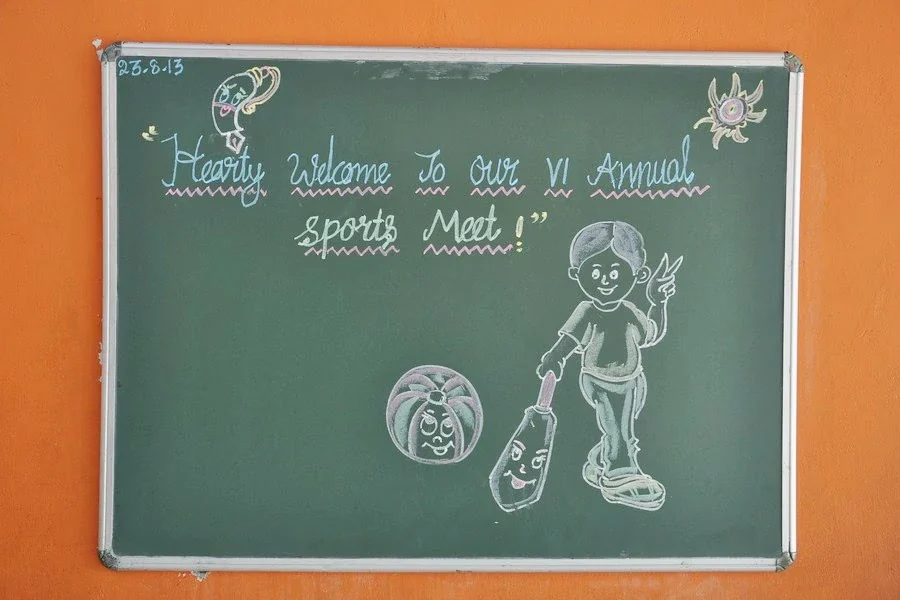 23.8.13
"Hearty Welcome To our VI Annual
sports Meet!"